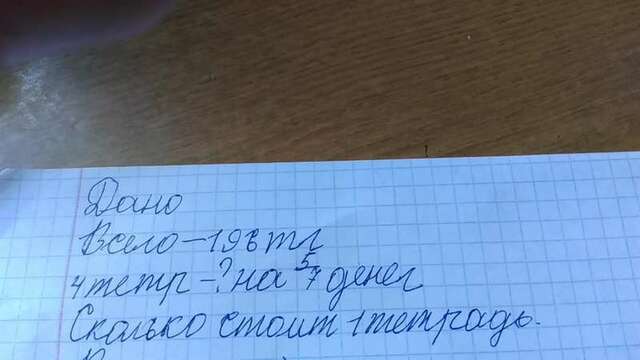 Дано
Всего - 196 тг
4 тетр - ? на 5/7 денег
Сколько стоит 1 тетрадь.